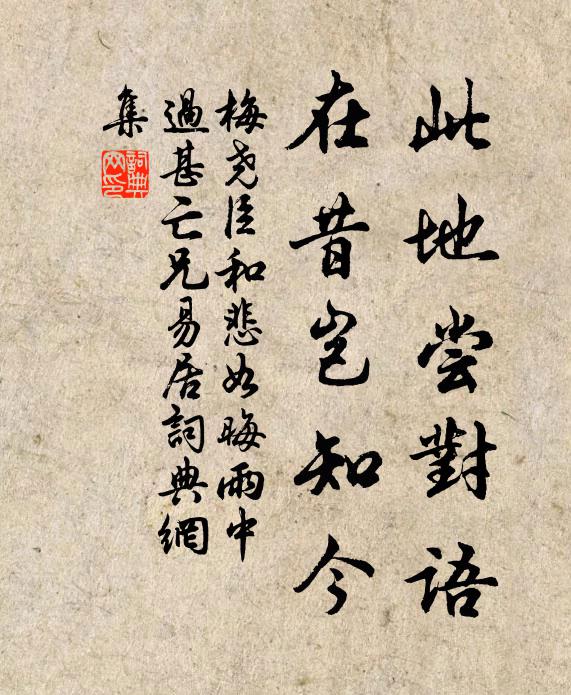 此地尝對語
在昔岂知今
梅尧臣和悲如晦雨中
過甚亡兄易居詞典網
集
詞典
网印